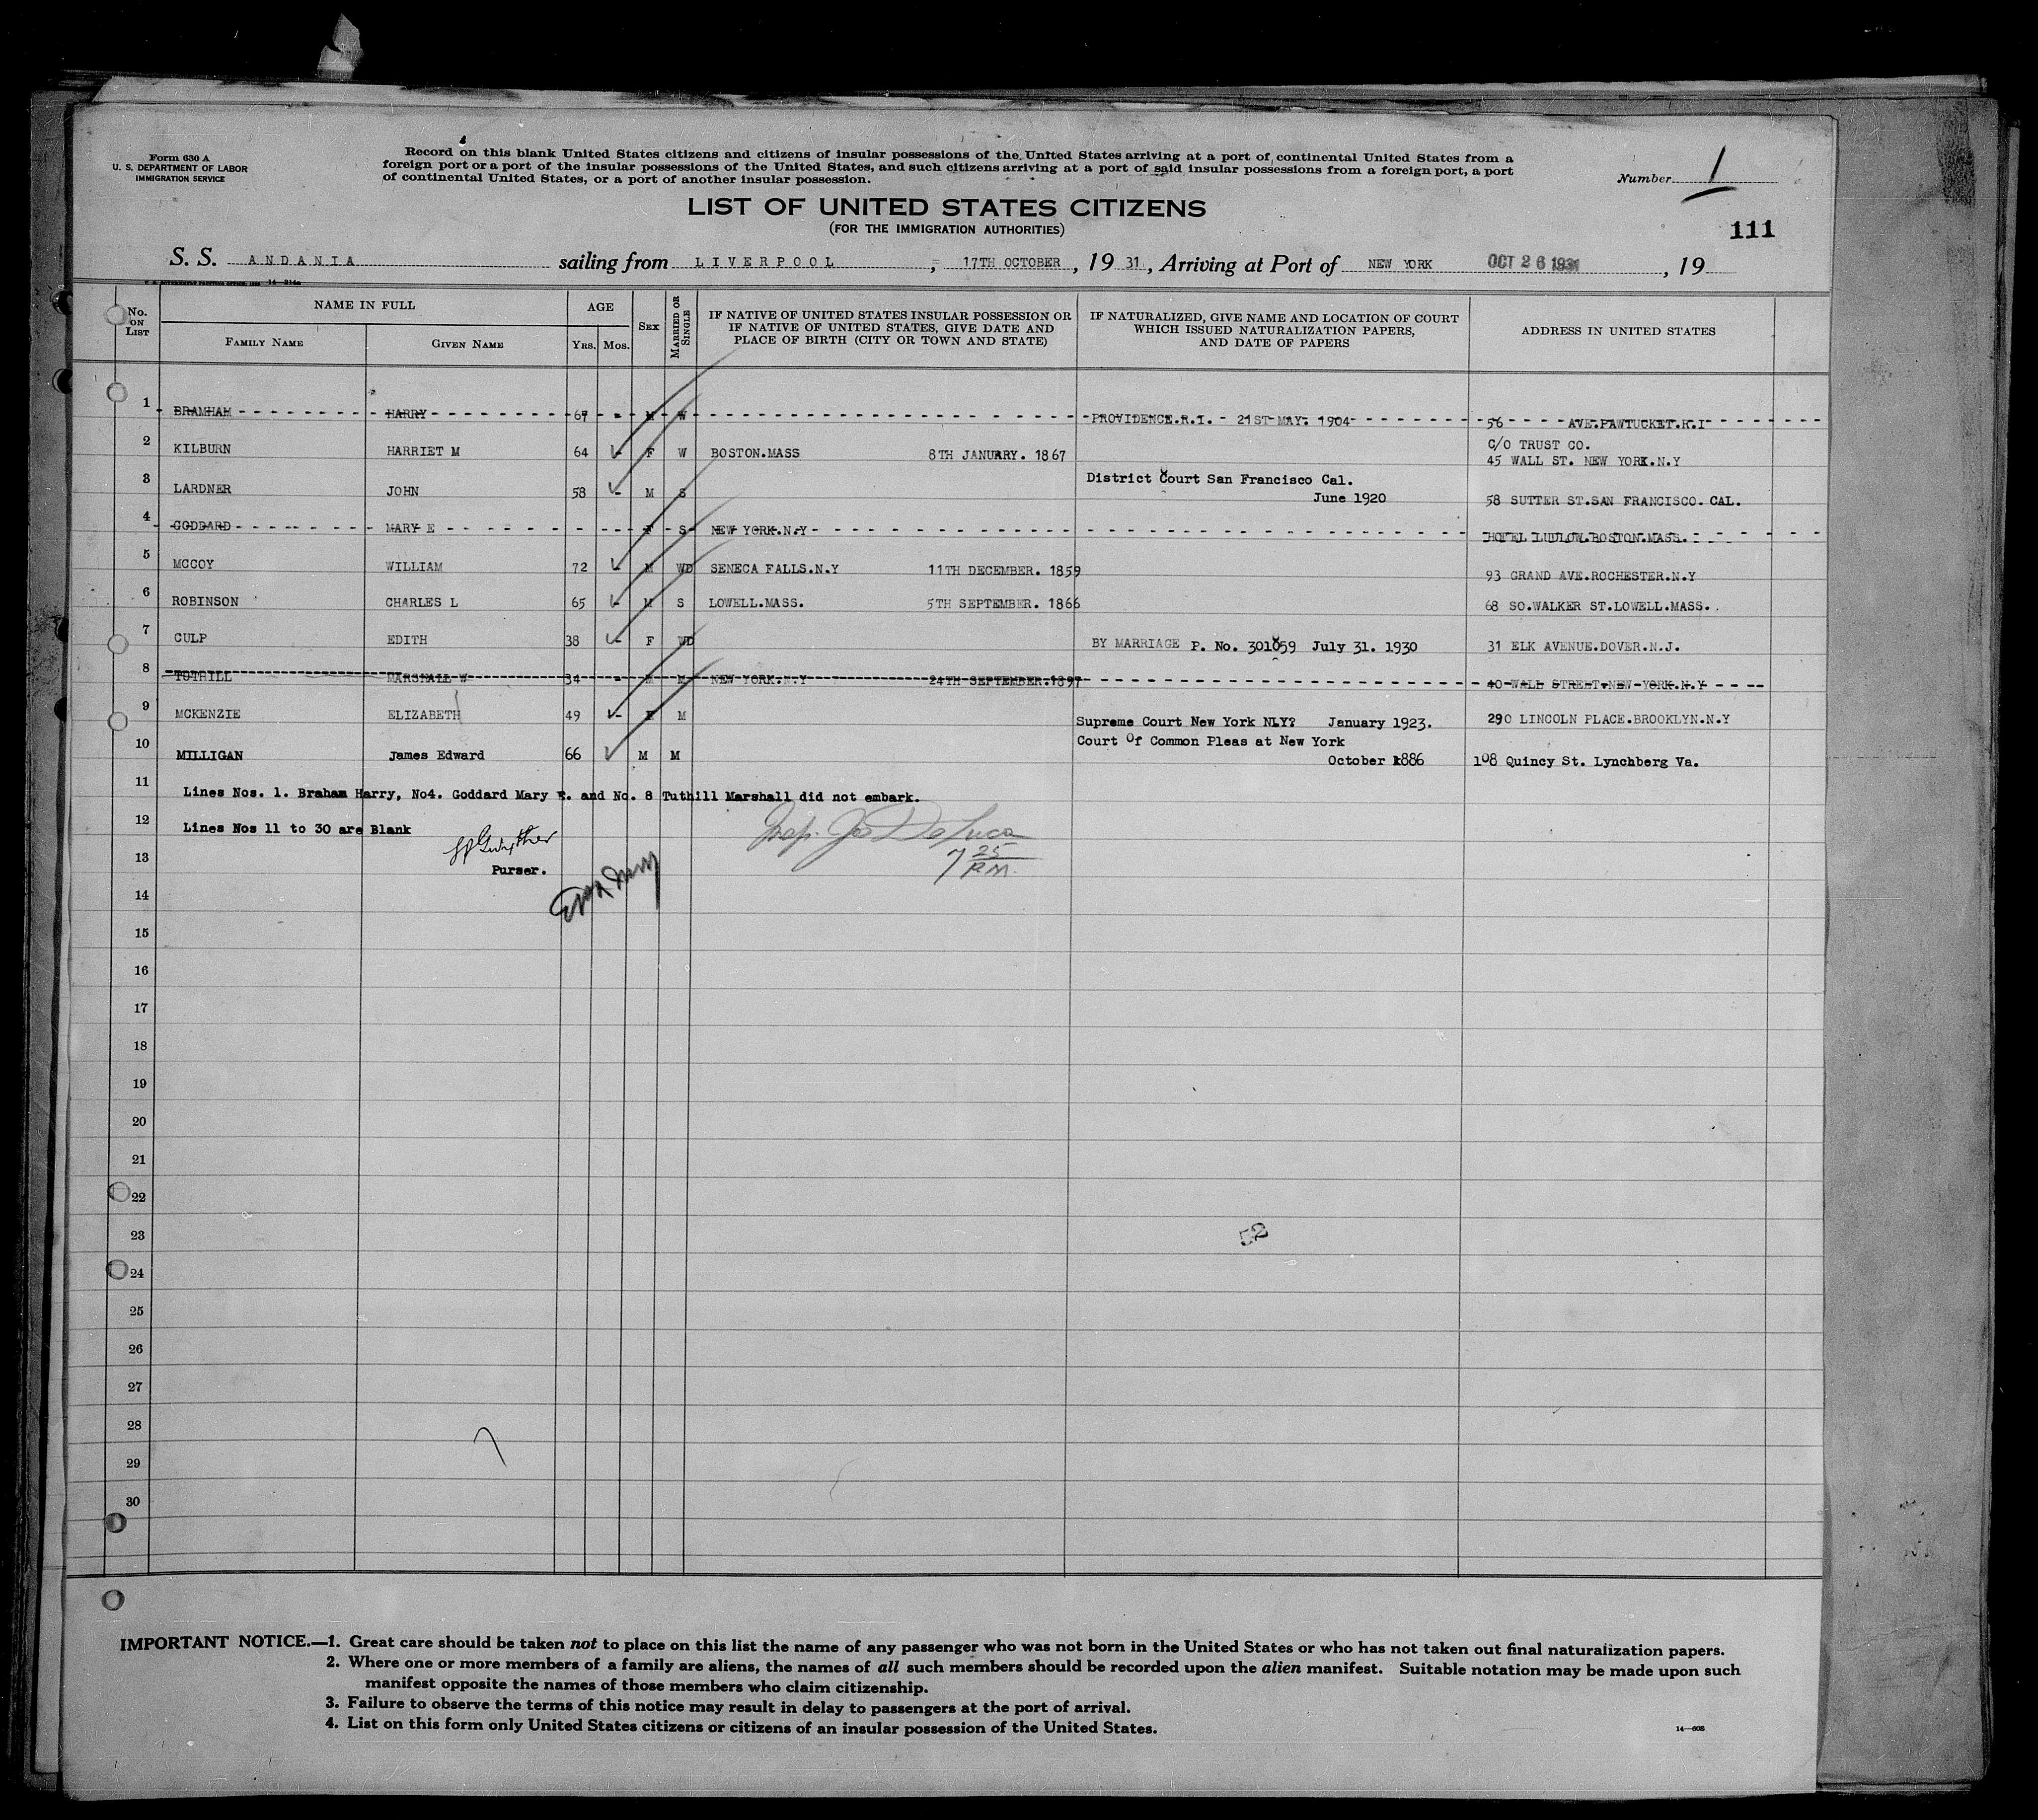 Form 630 A
U. S. DEPARTMENT OF LABOR
IMMIGRATION SERVICE
Record on this blank United States citizens and citizens of insular possessions of the United States arriving at a port of continental United States from a
foreign port or a port of the insular possessions of the United States, and such citizens arriving at a port of said insular possessions from a foreign port, a port
of continental United States, or a port of another insular possession.
Number 1
LIST OF UNITED STATES CITIZENS
(FOR THE IMMIGRATION AUTHORITIES)
111
S. S. ANDANIA sailing from LIVERPOOL, 17TH OCTOBER, 19 31, Arriving at Port of NEW YORK OCT 26 1931, 19
No. ON LIST
NAME IN FULL
FAMILY NAME
GIVEN NAME
AGE
YRS. MOS.
SEX
MARRIED OR SINGLE
IF NATIVE OF UNITED STATES INSULAR POSSESSION OR
IF NATIVE OF UNITED STATES, GIVE DATE AND
PLACE OF BIRTH (CITY OR TOWN AND STATE)
IF NATURALIZED, GIVE NAME AND LOCATION OF COURT
WHICH ISSUED NATURALIZATION PAPERS,
AND DATE OF PAPERS
ADDRESS IN UNITED STATES
1 BRAMHAM HARRY 67 - M W PROVIDENCE.R.I. - 21ST MAY. 1904 56 AVE.PAWTUCKET.R.I
2 KILBURN HARRIET M 64 - F W BOSTON.MASS 8TH JANUARY. 1867 C/O TRUST CO.
45 WALL ST. NEW YORK.N.Y
3 LARDNER JOHN 58 - M S District Court San Francisco Cal.
June 1920 58 SUTTER ST.SAN FRANCISCO. CAL.
4 GODDARD MARY E - - F S NEW YORK.N.Y HOTEL LUDLOW.BOSTON.MASS.
5 MCCOY WILLIAM 72 - M WD SENECA FALLS.N.Y 11TH DECEMBER. 1859 93 GRAND AVE.ROCHESTER.N.Y
6 ROBINSON CHARLES L 65 - M S LOWELL.MASS. 5TH SEPTEMBER. 1866 68 SO.WALKER ST.LOWELL.MASS.
7 CULP EDITH 38 - F WD BY MARRIAGE P. No. 301859 July 31. 1930 31 ELK AVENUE.DOVER.N.J.
8 TUTHILL MARSHALL W 34 - M M NEW YORK.N.Y 24TH SEPTEMBER.1897 40 WALL STREET.NEW YORK.N.Y
9 MCKENZIE ELIZABETH 49 - F M Supreme Court New York NLY? January 1923. 290 LINCOLN PLACE.BROOKLYN.N.Y
10 MILLIGAN James Edward 66 M M Court Of Common Pleas at New York
October 1886 108 Quincy St. Lynchberg Va.
11 Lines Nos. 1. Braham Harry, No4. Goddard Mary E. and No. 8 Tuthill Marshall did not embark.
12 Lines Nos 11 to 30 are Blank
Insp. Jos DeLuca
7 25 P.M.
13 Purser.
14
15
16
17
18
19
20
21
22
23
52
24
25
26
27
28
29
30
IMPORTANT NOTICE.—1. Great care should be taken not to place on this list the name of any passenger who was not born in the United States or who has not taken out final naturalization papers.
2. Where one or more members of a family are aliens, the names of all such members should be recorded upon the alien manifest. Suitable notation may be made upon such
manifest opposite the names of those members who claim citizenship.
3. Failure to observe the terms of this notice may result in delay to passengers at the port of arrival.
4. List on this form only United States citizens or citizens of an insular possession of the United States.
14—608